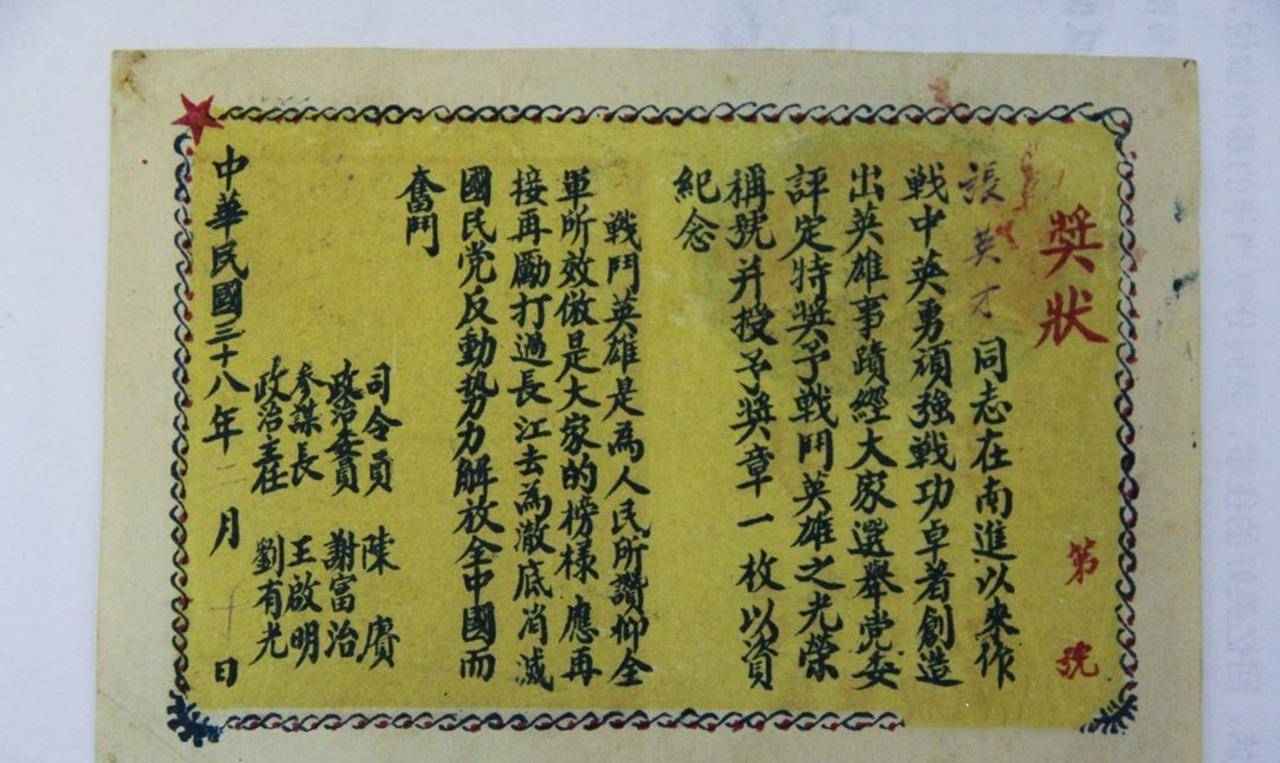 獎狀
第 號
張英才同志在南進以來作
戦中英勇頑強戦功卓著創造
出英雄事蹟經大家選舉党委
評定特獎予戦鬥英雄之光榮
稱號并授予獎章一枚以資
紀念
戦鬥英雄是為人民所讚仰全
軍所效倣是大家的榜様應再
接再勵打過長江去為澈底消滅
國民党反動势力解放全中國而
奮鬥
司令員 陳賡
政治委員 謝富治
参謀長 王啟明
政治主任 劉有光
中華民國三十八年二月十日